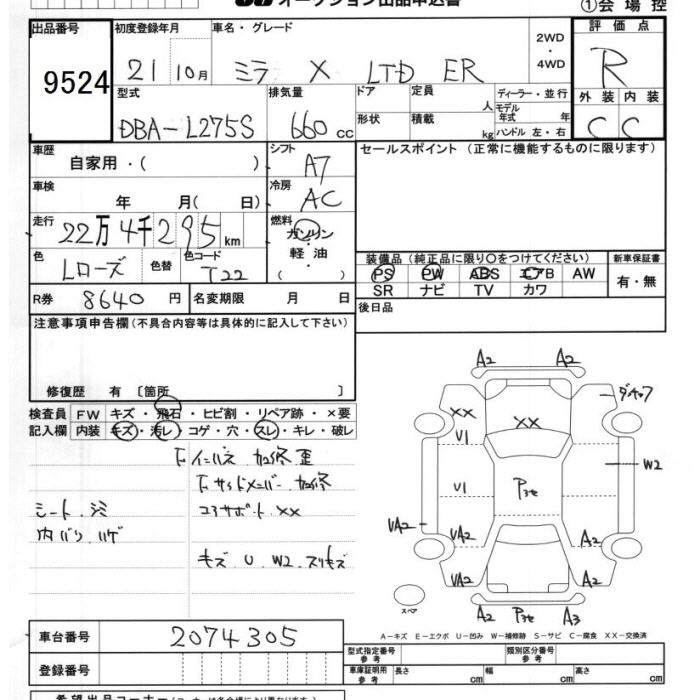 オークション出品申込書 ①会場控
出品番号 初度登録年月 車名・グレード 2WD・4WD 評価点
9524 21 10月 ミラ X LTD ER R
型式 排気量 ドア 定員 人 ディーラー・並行 外装 内装
DBA-L275S 660cc 形状 積載 kg モデル年式 年 ハンドル 左・右 C C
車歴 自家用・( ) シフト A7 セールスポイント (正常に機能するものに限ります)
車検 年 月( 日) 冷房 AC
走行 22万4千295km 燃料 ガソリン・軽油・( )
色 Lローズ 色替 色コード T22
装備品 (純正品に限り○をつけてください) 新車保証書
PS PW ABS エアB AW 有・無
SR ナビ TV カワ
R券 8640円 名変期限 月 日 後日品
注意事項申告欄 (不具合内容等は具体的に記入して下さい)
修復歴 有 〔箇所 〕
検査員 FW キズ・飛石・ヒビ割・リペア跡・×要
記入欄 内装 キズ・汚レ・コゲ・穴・スレ・キレ・破レ
F インパネ 加修 歪
F サイドメンバー 加修
シート シミ コアサポート XX
内バリ ハゲ
キズ U W2 スリキズ
A2 A2
ダキフ
XX XX
U1
W2
U1 Pヨセ
UA2 UA2 A2
UA2 A2
スペア
A2 Pヨセ A3
A-キズ E-エクボ U-凹み W-補修跡 S-サビ C-腐食 XX-交換済
車台番号 2074305 型式指定番号 参考 類別区分番号 参考
登録番号 車庫証明用 参考 長さ cm 幅 cm 高さ cm
希望出品コーナー